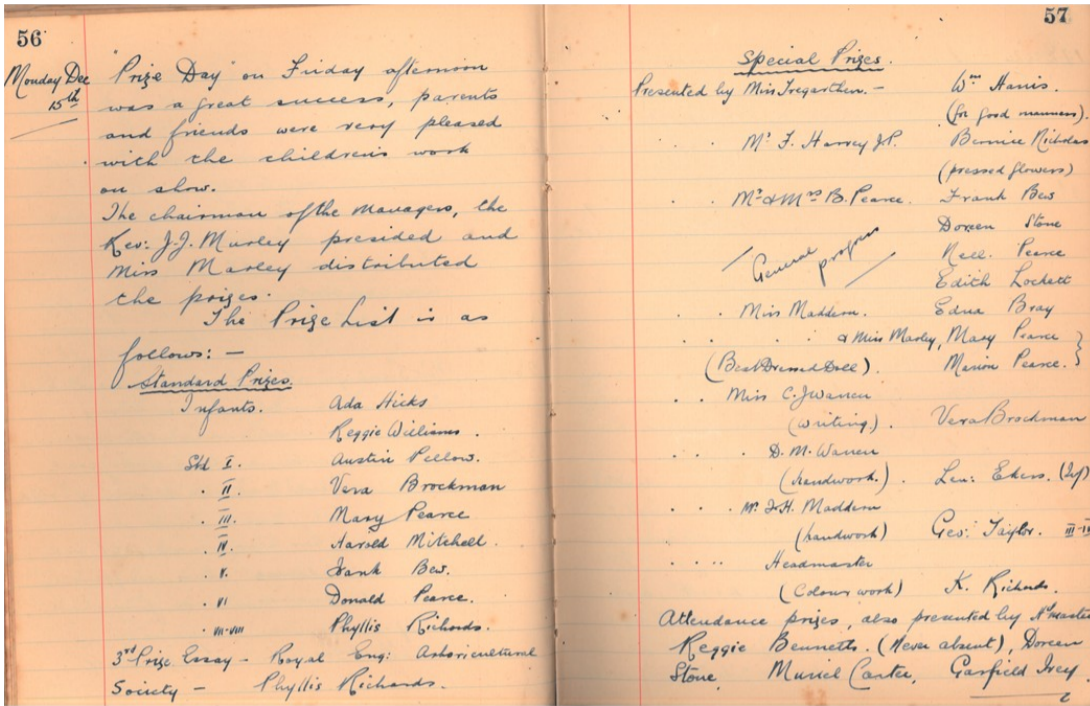 56
Monday Dec
15th
"Prize Day" on Friday afternoon
was a great success, parents
and friends were very pleased
with the children's work
on show.
The chairman of the managers, the
Rev: J.J. Murley presided and
Miss Marley distributed
the prizes.
The Prize List is as
follows: —
Standard Prizes.
Infants. Ada Hicks
Reggie Williams.
Std I. Austin Pellow.
. II. Vera Brockman
. III. Mary Pearce
. IV. Harold Mitchell.
. V. Frank Bew.
. VI Donald Pearce.
. VII-VIII Phyllis Richards.
3rd Prize Essay - Royal Eng: Arboricultural
Society - Phyllis Richards.
57
Special Prizes.
Presented by Miss Tregarthen. - Wm Harris.
(for good manners).
. . . Mr F. Harvey J.P. Bernice Nicholas
(pressed flowers)
. . Mr & Mrs B. Pearce. Frank Bew
Doreen Stone
General progress Nell. Pearce
Edith Lockett
. . Miss Maddern. Edna Bray
. . . . . & Miss Marley, Mary Pearce }
(Best Dressed Doll). Marion Pearce. }
. . Miss C. J Warren
(writing). Vera Brockman
. . . D. M. Warren
(handwork.). Len: Ekers. (Inf)
. . . Mr. J.H. Maddern
(handwork) Geo: Taylor. III-IV
. . . . Headmaster
(Colour work) K. Richards.
Attendance prizes, also presented by Hdmaster
Reggie Bennetts. (Never absent), Doreen
Stone, Muriel Carter, Garfield Ivey